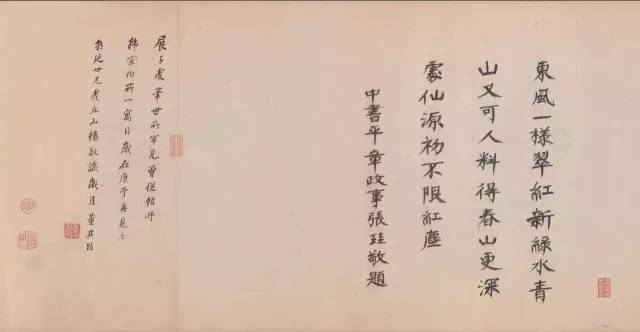 東風一樣翠紅新綠水青
山又可人料得春山更深
處仙源初不限紅塵
中書平章政事張珪敬題
展子虔筆世所罕見曾從館師
韓宗伯所一寓目歲在庚午再見之
延世兄虎丘山樓敬識歲月 董其昌